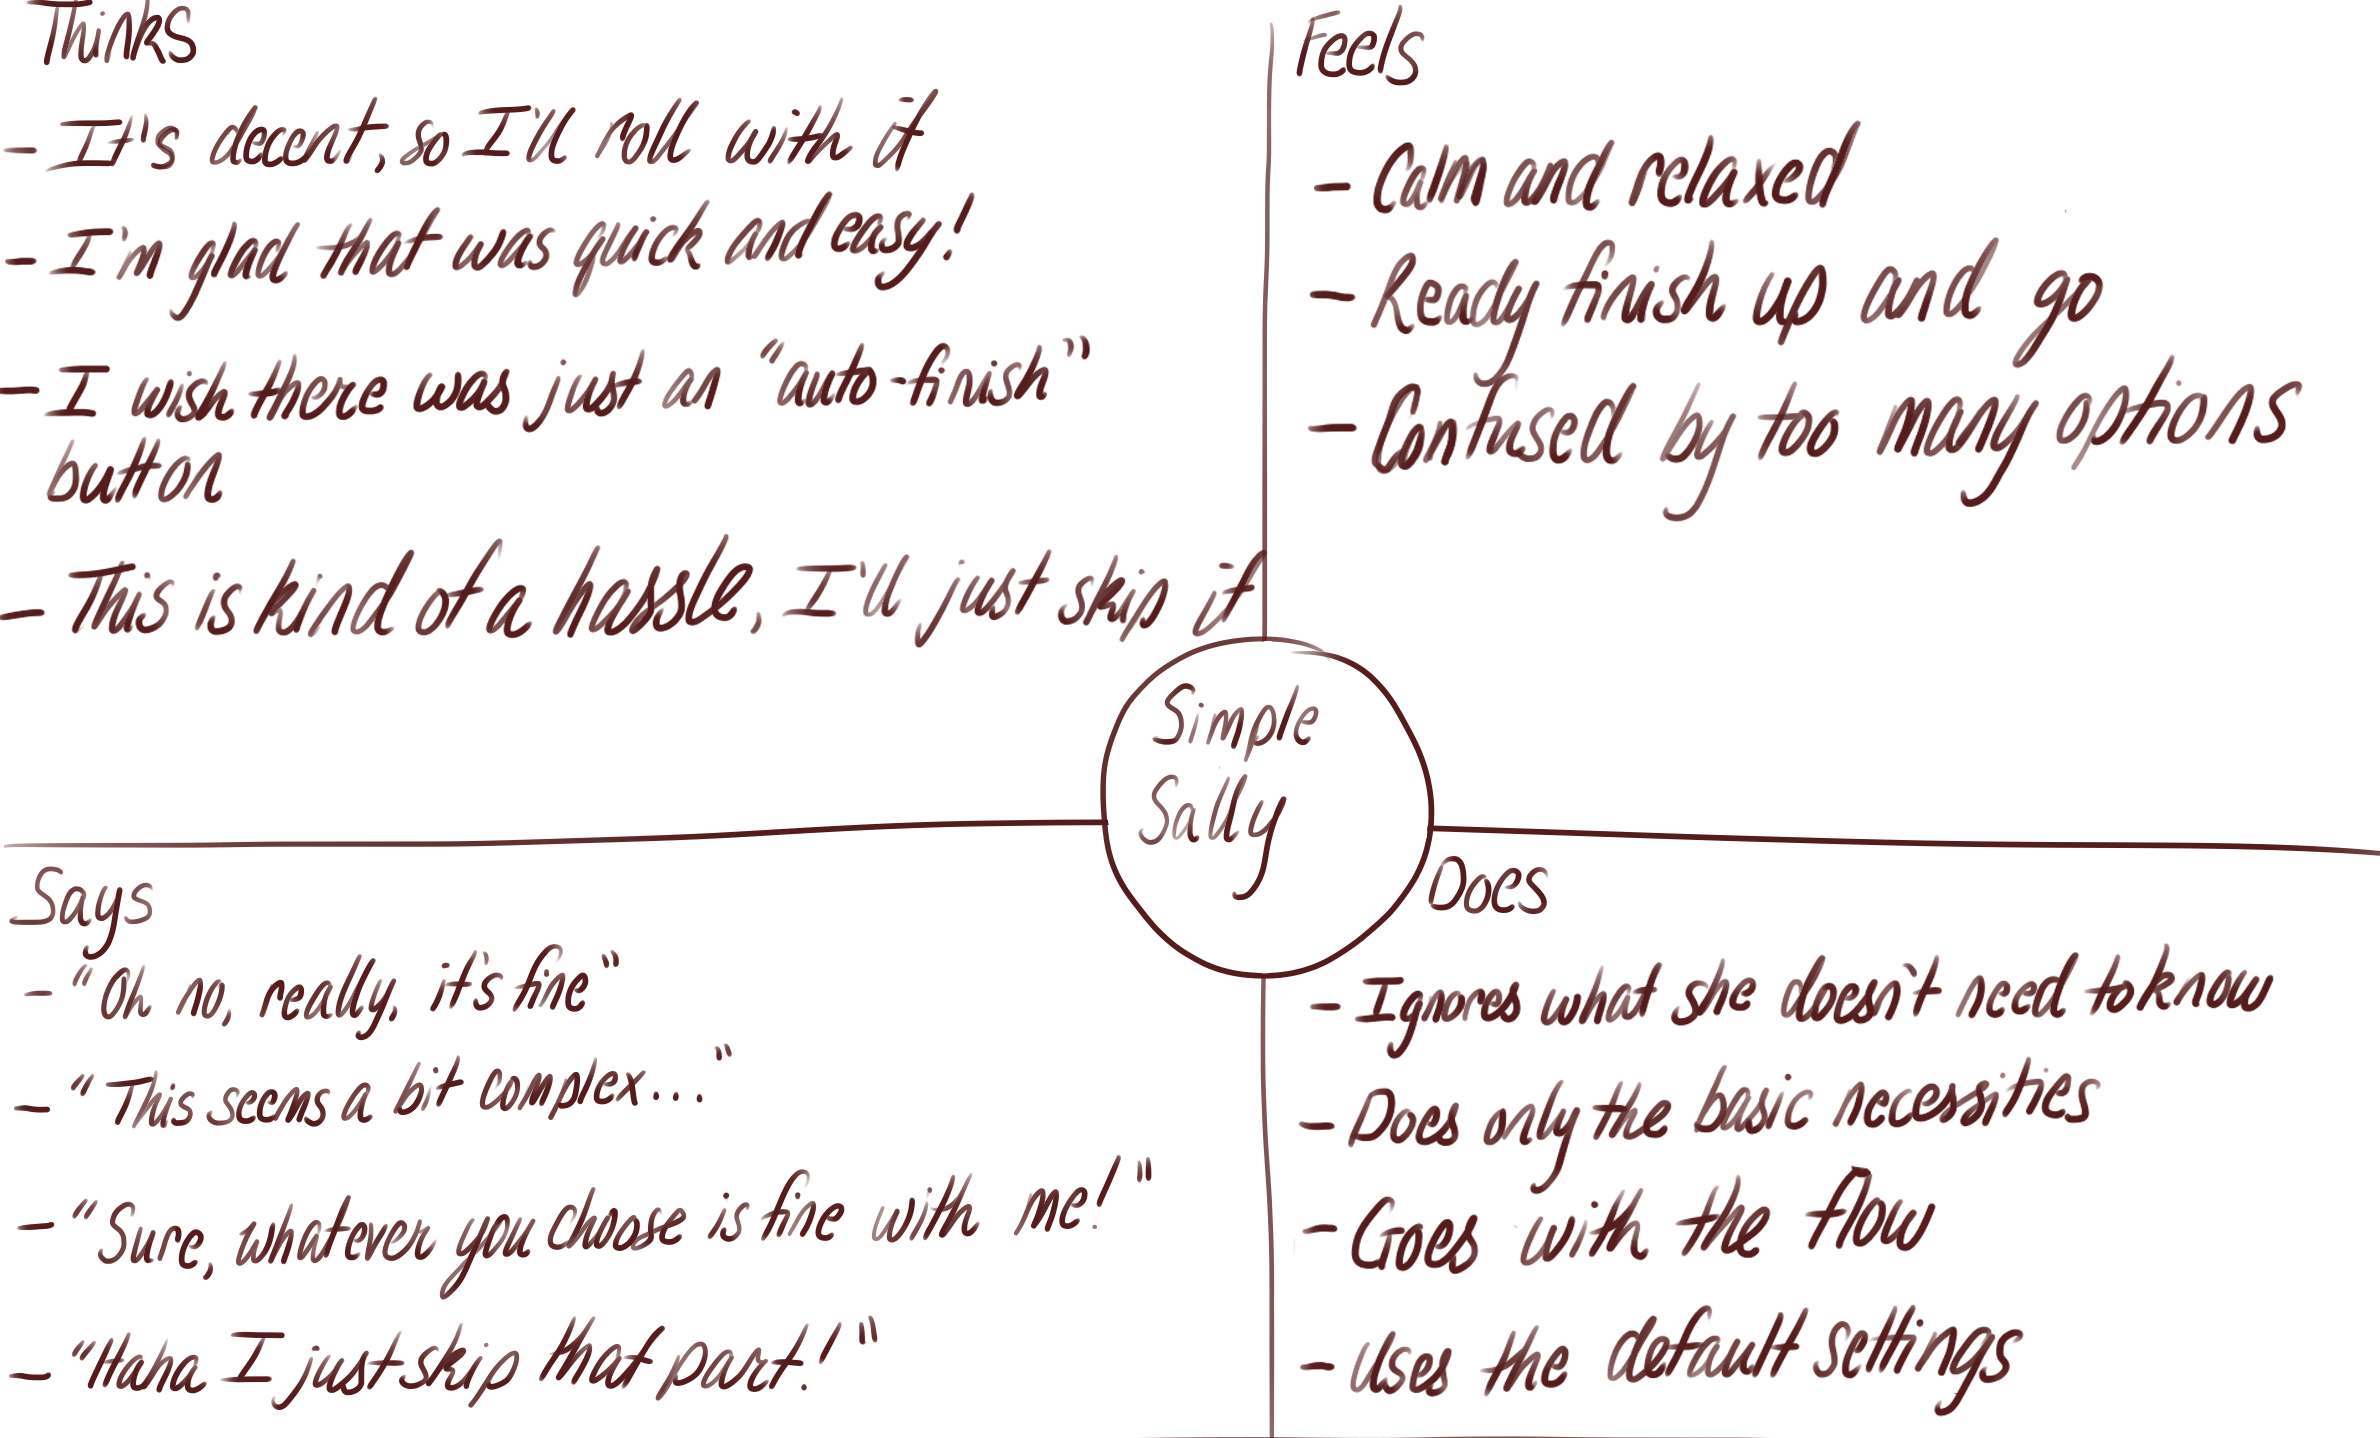 Thinks
- It's decent, so I'll roll with it
- I'm glad that was quick and easy!
- I wish there was just an "auto-finish"
button
- This is kind of a hassle, I'll just skip it
Feels
- Calm and relaxed
- Ready finish up and go
- Confused by too many options
Simple
Sally
Says
- "Oh no, really, it's fine"
- "This seems a bit complex..."
- "Sure, whatever you choose is fine with me!"
- "Haha I just skip that part!"
Does
- Ignores what she doesn't need to know
- Does only the basic necessities
- Goes with the flow
- Uses the default settings